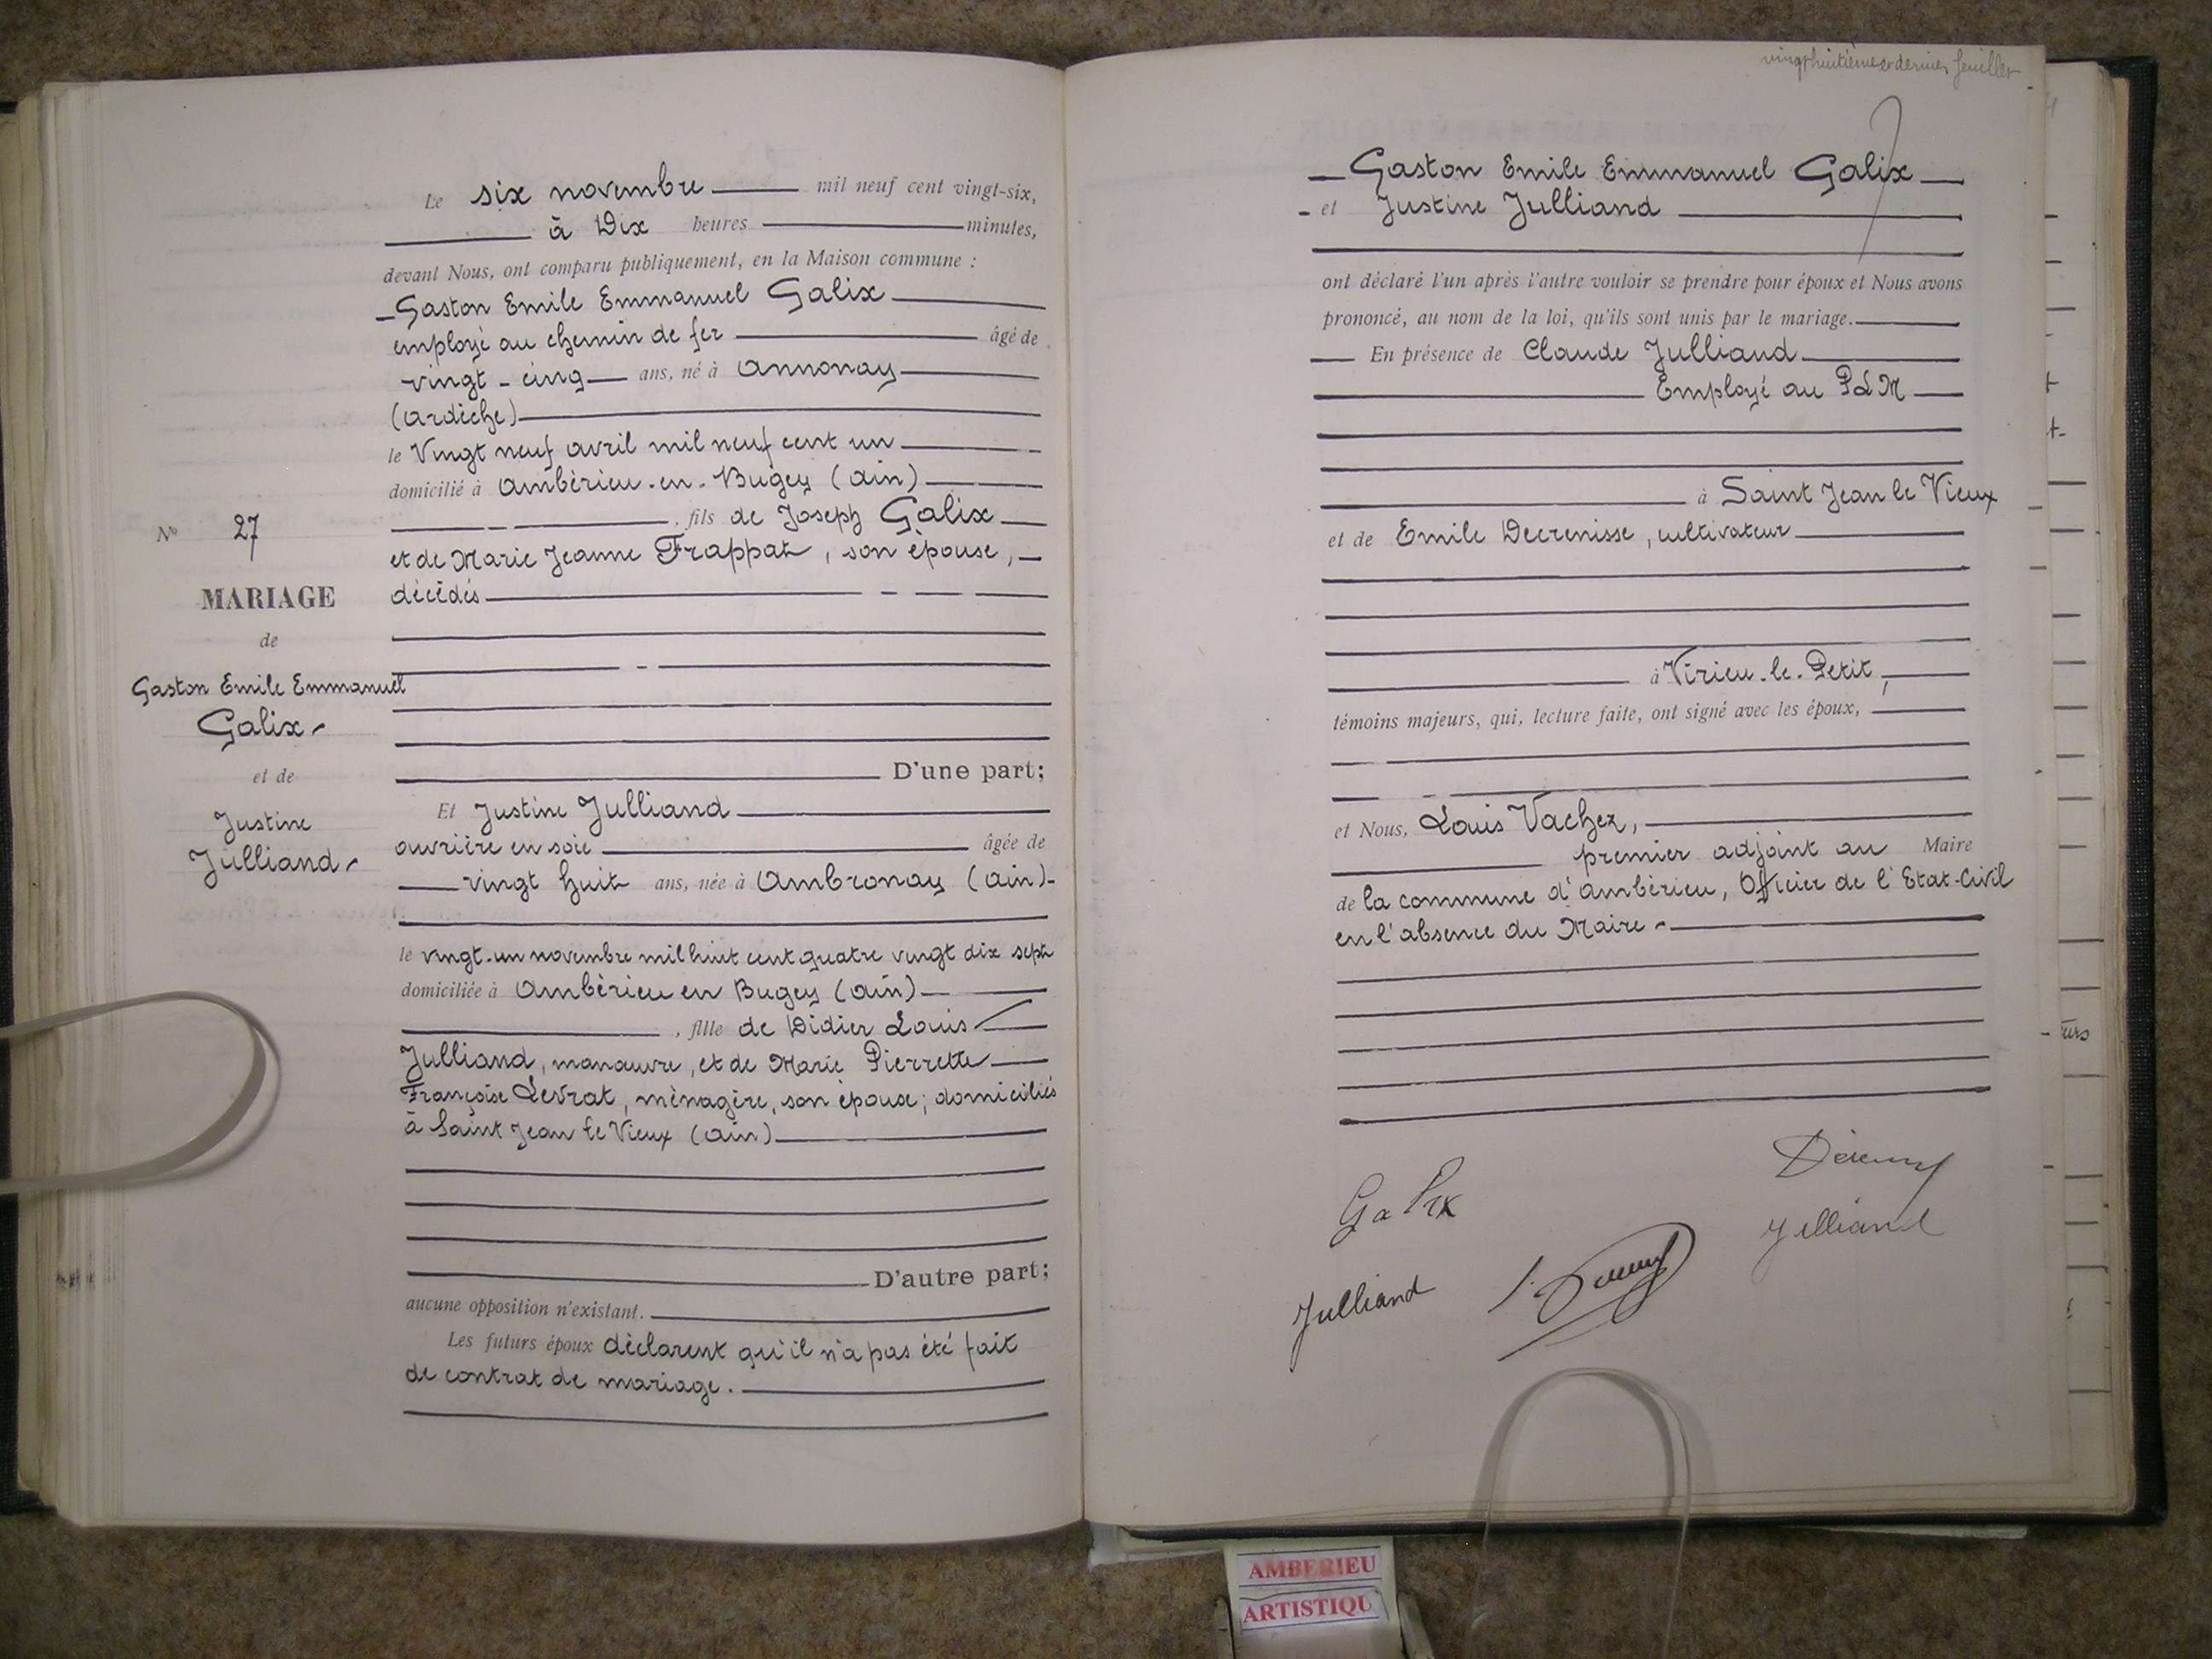 N° 27
MARIAGE
de
Gaston Emile Emmanuel
Galix
et de
Justine
Julliand
Le six novembre mil neuf cent vingt-six,
à Dix heures minutes,
devant Nous, ont comparu publiquement, en la Maison commune :
Gaston Emile Emmanuel Galix
employé au chemin de fer âgé de
vingt-cinq ans, né à Annonay
(Ardèche)
le Vingt neuf avril mil neuf cent un
domicilié à Ambérieu-en-Bugey (Ain)
, fils de Joseph Galix
et de Marie Jeanne Frappat, son épouse,
décédés
D'une part;
Et Justine Julliand
ouvrière en soie âgée de
vingt huit ans, née à Ambronay (Ain)
le vingt-un novembre mil huit cent quatre vingt dix sept
domiciliée à Ambérieu en Bugey (Ain)
, fille de Didier Louis
Julliand, manœuvre, et de Marie Pierrette
Françoise Levrat, ménagère, son épouse; domiciliés
à Saint Jean le Vieux (Ain)
D'autre part;
aucune opposition n'existant.
Les futurs époux déclarent qu'il n'a pas été fait
de contrat de mariage.
vingt huitième et dernier feuillet
Gaston Emile Emmanuel Galix
et Justine Julliand
ont déclaré l'un après l'autre vouloir se prendre pour époux et Nous avons
prononcé, au nom de la loi, qu'ils sont unis par le mariage.
En présence de Claude Julliand
Employé au PLM
à Saint Jean le Vieux
et de Emile Decrenisse, cultivateur
à Virieu-le-Petit,
témoins majeurs, qui, lecture faite, ont signé avec les époux,
et Nous, Louis Vachez,
premier adjoint au Maire
de la commune d'Ambérieu, Officier de l'Etat-Civil
en l'absence du Maire
Galix
Julliand
Julliand
AMBERIEU
ARTISTIQU